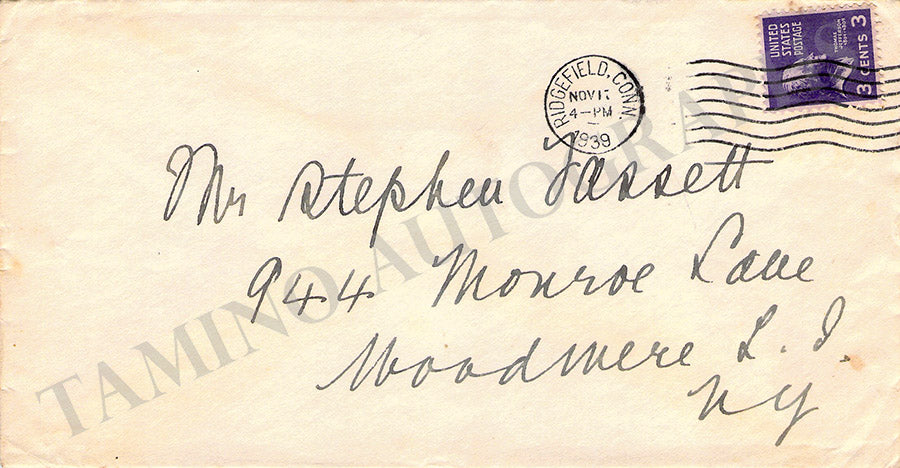 UNITED STATES POSTAGE
THOMAS JEFFERSON
1801-1809
3 CENTS 3
RIDGEFIELD, CONN.
NOV 17
4-PM
1939
Mr Stephen Fassett
944 Monroe Lane
Woodmere L. I.
NY
TAMINO AUTOGRAPHS